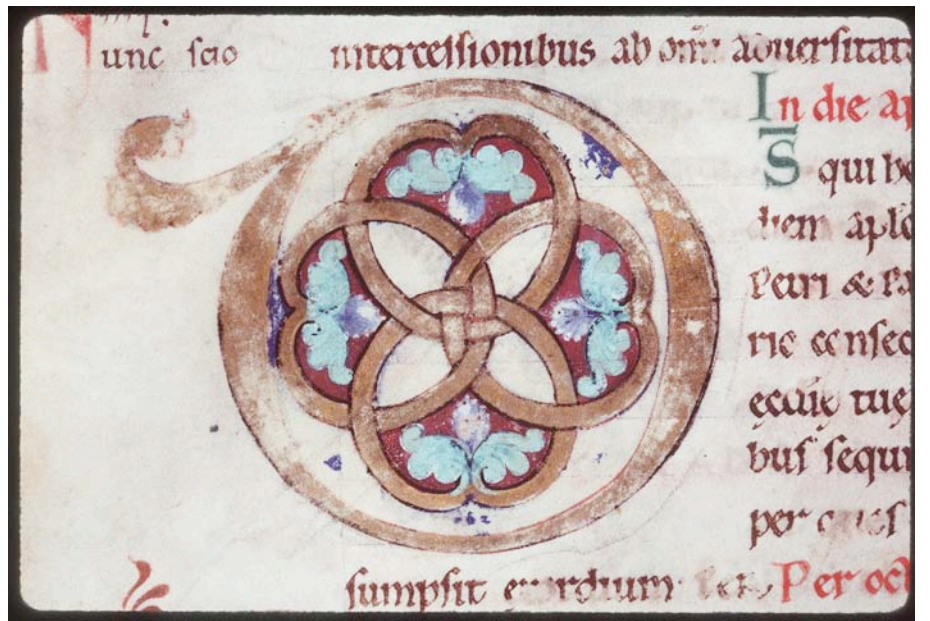 unc scio
intercessionibus ab om̄i aduersitat
In die ap
S̄ qui ho
diem aplo
Petri & Pa
sec
ecclīę tuę
bus sequi
per
sumpsit exordium
Per oct